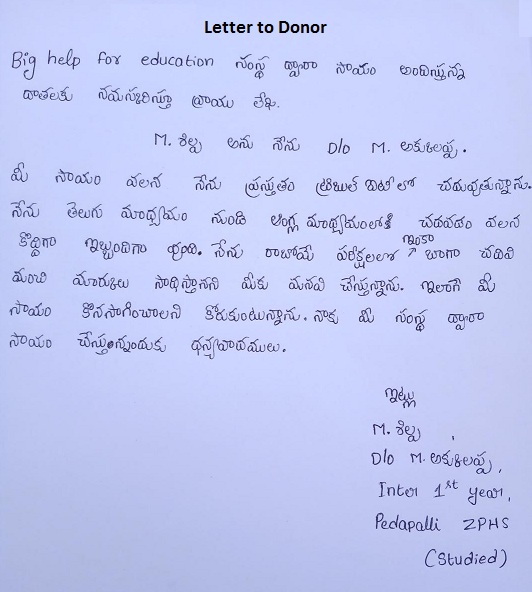 Letter to Donor
Big help for education సంస్థ ద్వారా సాయం అందిస్తున్న
దాతలకు నమస్కరిస్తూ వ్రాయు లేఖ.
M. శిల్ప అను నేను D/o M. అకులప్ప.
మీ సాయం వలన నేను ప్రస్తుతం ట్రిబుల్ ఐటి లో చదువుతున్నాను.
నేను తెలుగు మాధ్యమం నుండి ఆంగ్ల మాధ్యమంలోకి చదవడం వలన
కొద్దిగా ఇబ్బందిగా ఉంది. నేను రాబోయే పరీక్షలలో ఇంకా బాగా చదివి
మంచి మార్కులు సాధిస్తానని మీకు మనవి చేస్తున్నాను. ఇలాగే మీ
సాయం కొనసాగించాలని కోరుకుంటున్నాను. నాకు మీ సంస్థ ద్వారా
సాయం చేస్తున్నందుకు ధన్యవాదములు.
ఇట్లు
M. శిల్ప,
D/o M. అకులప్ప,
Inter 1st year,
Pedapalli ZPHS
(Studied)